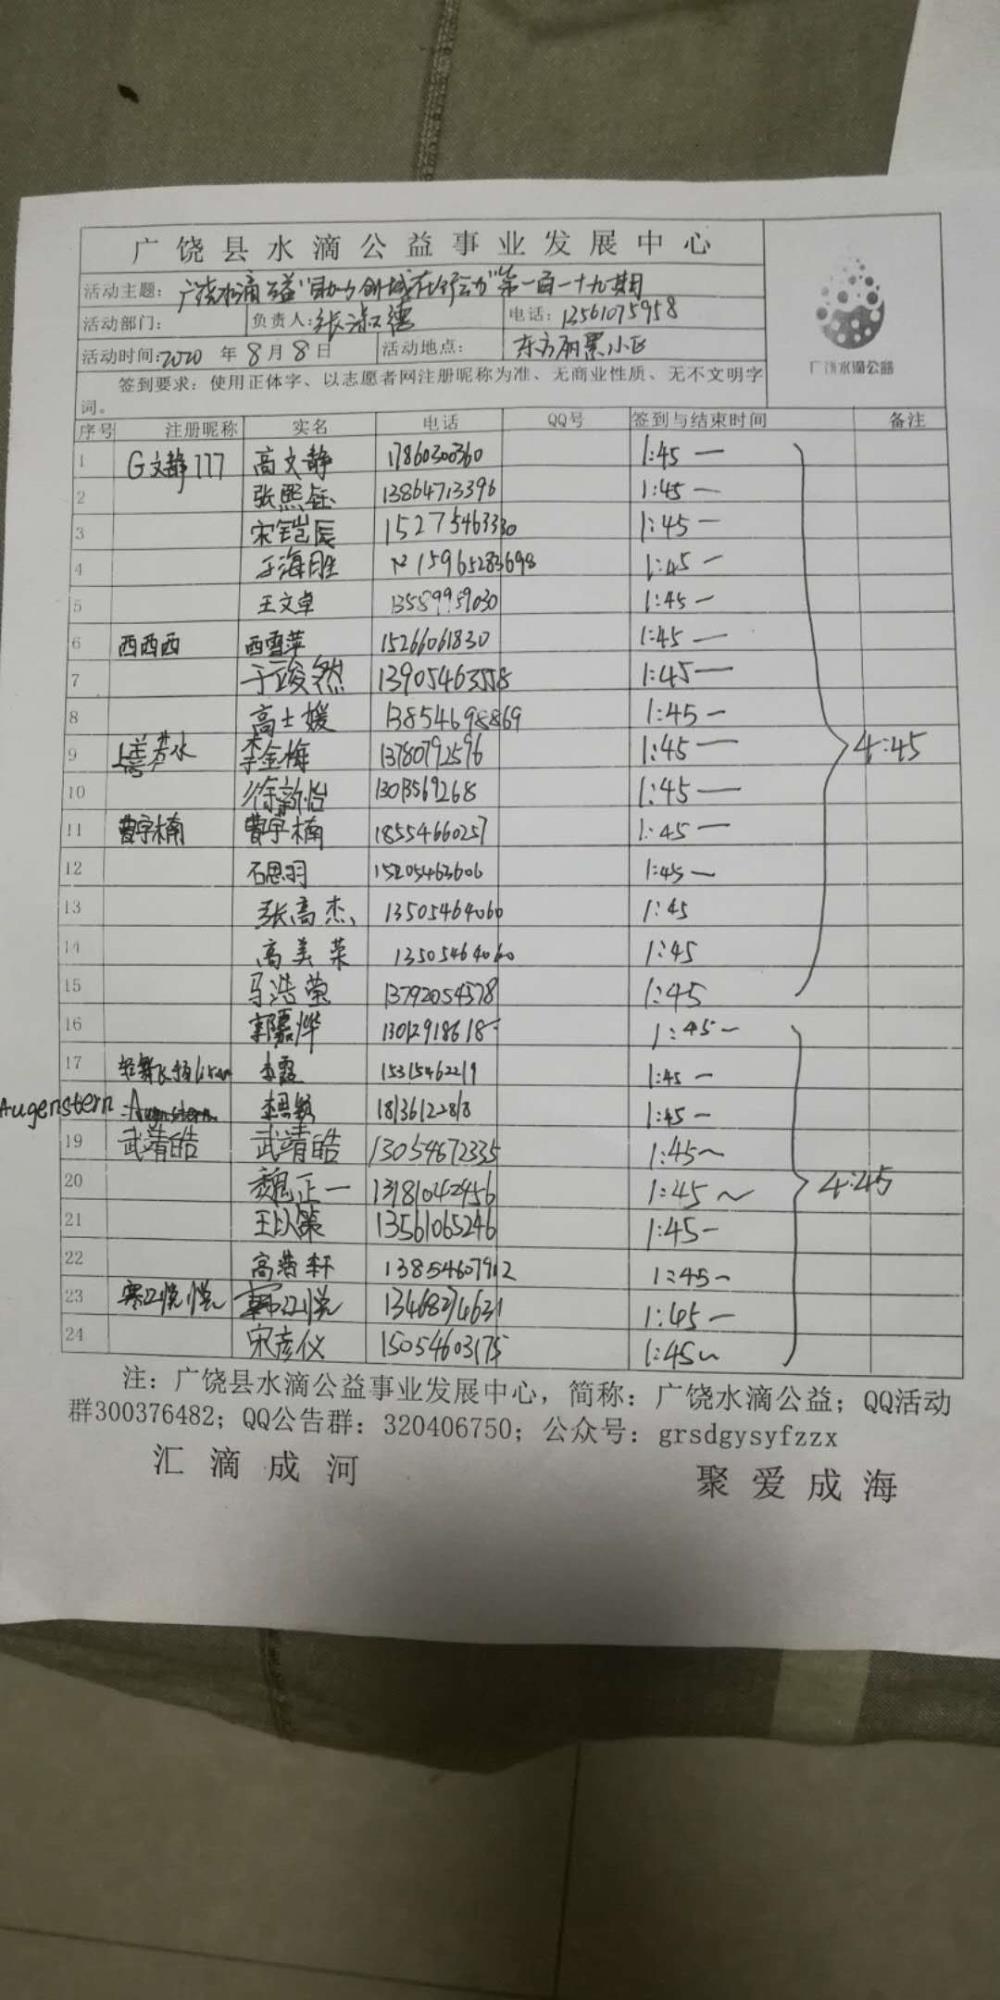 广饶县水滴公益事业发展中心
活动主题: 广饶水滴公益"助力创城在行动"第一百一十九期
活动部门: 负责人:张淑德 电话:13561075958
活动时间:2020 年 8 月 8 日 活动地点: 东方丽景小区
签到要求: 使用正体字、以志愿者网注册昵称为准、无商业性质、无不文明字
词。
广饶水滴公益
序号 注册昵称 实名 电话 QQ号 签到与结束时间 备注
1 G文静777 高文静 17860300360 1:45 一
2 张熙钰 13864713396 1:45 一
3 宋铠辰 15275463330 1:45 一
4 于海胜 15965283698 1:45 一
5 王文卓 13589959030 1:45 一
6 西西西 西雪苹 15266061830 1:45 一
7 于竣然 13905463558 1:45 一
8 高士媛 13854698869 1:45 一
9 上善若水 李金梅 13780792596 1:45 一 4:45
10 徐新怡 13013569268 1:45 一
11 曹宇楠 曹宇楠 18554660257 1:45 一
12 石思羽 15205463606 1:45 ~
13 张高杰 13505464060 1:45
14 高美荣 13505464060 1:45
15 马浩莹 13792054578 1:45
16 郭嘉烨 1:45 ~
17 李霞 15315462219 1:45 ~
Augenstern 18136122818 1:45 一
19 武靖皓 武靖皓 13054672335 1:45~
20 魏正一 13181042456 1:45 ~ 4:45
21 王以策 13561065246 1:45-
22 高浩轩 13854607912 1:45~
23 韩江悦 13468274631 1:45 一
24 宋彦仪 15054603175 1:45~
注: 广饶县水滴公益事业发展中心, 简称: 广饶水滴公益; QQ活动
群300376482; QQ公告群: 320406750; 公众号: grsdgysyfzzx
汇滴成河 聚爱成海